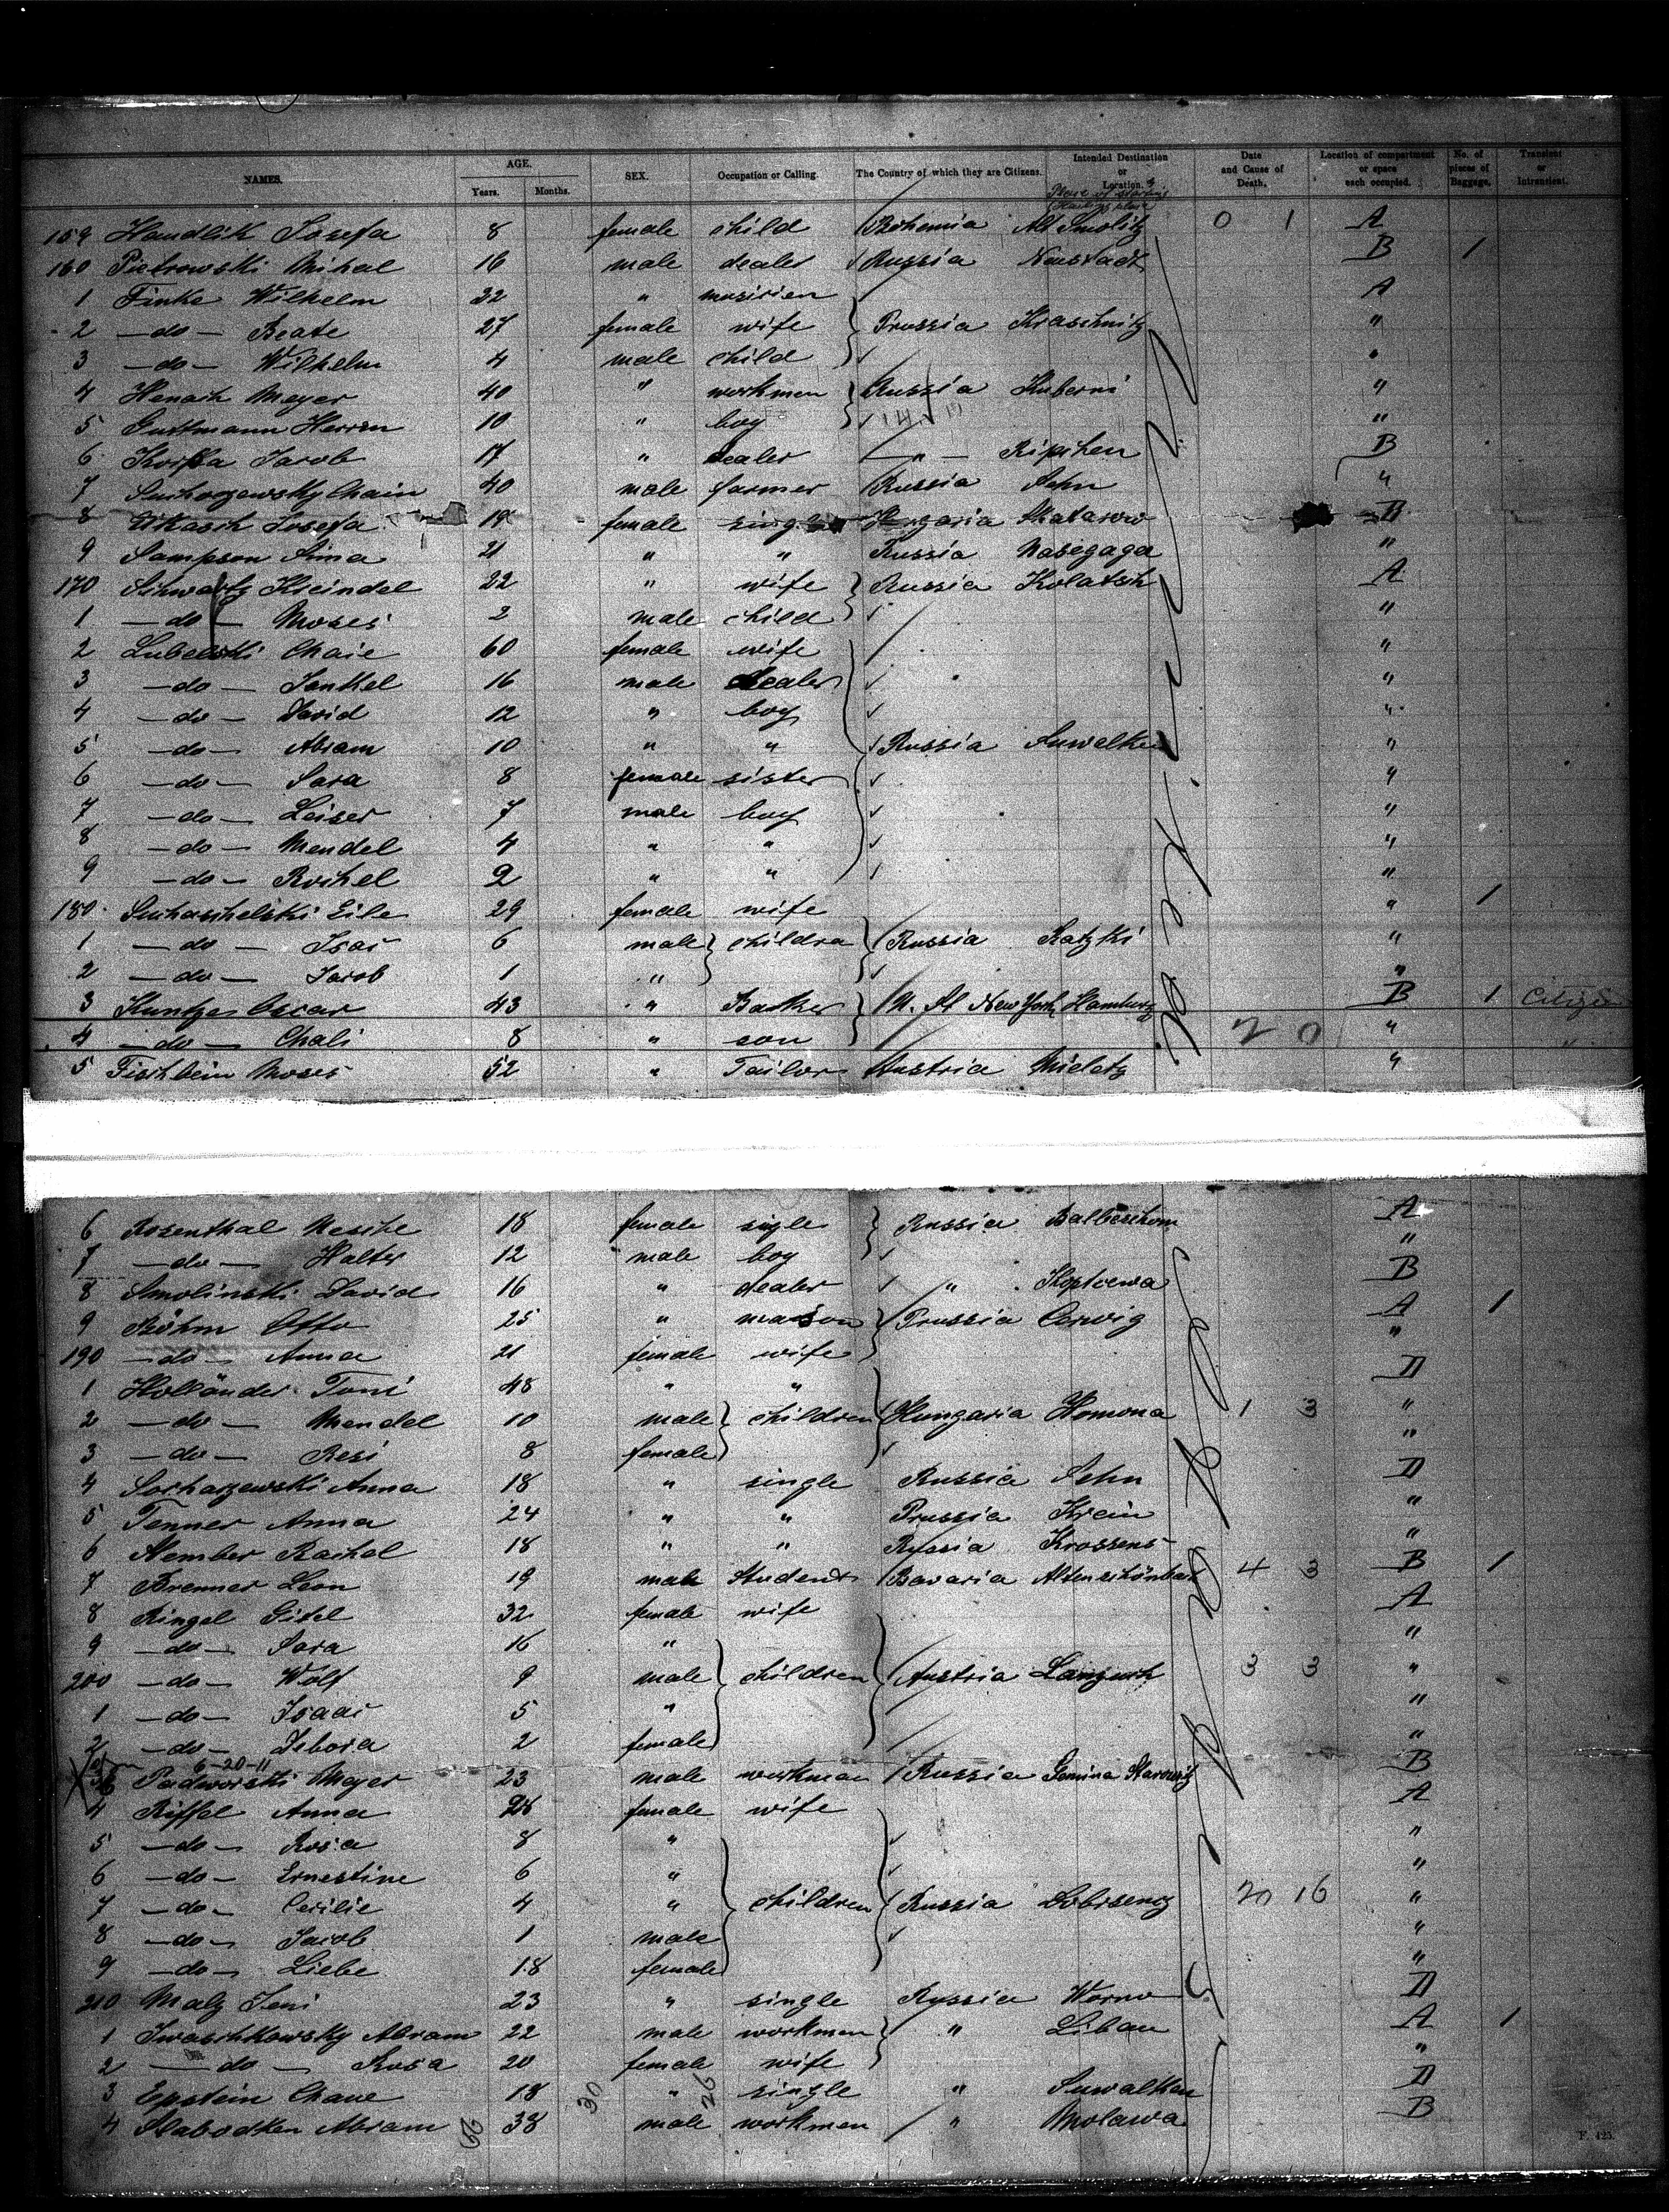 NAMES. AGE. Years. Months. SEX. Occupation or Calling. The Country of which they are Citizens. Intended Destination or Location. Date and Cause of Death. Location of compartment or space each occupied. No. of pieces of Baggage. Transient or Intransient.
Place of starting
159 Haudlik Josefa 8 female child Bohemia Alt Smolitz 0 1 A
160 Pietrowski Mihal 16 male dealer Russia Neustadt B 1
1 Finke Wilhelm 32 " musicien A
2 -do- Beate 27 female wife Prussia Kraschnitz "
3 -do- Wilhelm 4 male child "
4 Henach Meyer 40 " workmen Russia Kuberni "
5 Guttmann Herrm 10 " boy "
6 Korpa Jacob 17 " dealer -"- Ripihen B
7 Suchorzewsky Chain 40 male farmer Russia Sehn "
8 Ukasch Josefa 19 female single Hungaria D
9 Sampson Sima 21 " " Russia Wasegaga "
170 Schwartz Kreindel 22 " wife Russia Kolatsch A
1 -do- Moses 2 male child "
2 Lubelski Chaie 60 female wife "
3 -do- Jankel 16 male dealer "
4 -do- David 12 " boy "
5 -do- Abram 10 " " Russia Suwalken "
6 -do- Sara 8 female sister "
7 -do- Leiser 7 male boy "
8 -do- Mendel 4 " " "
9 -do- Rochel 2 " " "
180 Suchaschelski Eile 29 female wife " 1
1 -do- Isac 6 male children Russia Ratzki "
2 -do- Jacob 1 " "
3 Kuntze Oscar 43 " Barker U. St New York Hamburg B 1 Citizen
4 -do- Chali 8 " son 2 0 " "
5 Fischbein Moses 52 " Tailor Austria Mieletz "
6 Rosenthal Nesche 18 female sigle Russia Balbieschom A
7 -do- Halter 12 male boy "
8 Smolinski David 16 " dealer " Koptcewa B
9 Böhm Otto 25 " mason Prussia Cerwig A 1
190 -do- Anna 21 female wife "
1 Holländer Toni 48 " " D
2 -do- Mendel 10 male children Hungaria Homona 1 3 "
3 -do- Resi 8 female "
4 Sochorzewski Anna 18 " single Russia Sehn D
5 Tenner Anna 24 " " Prussia Krein "
6 Nember Rachel 18 " " Russia Krossens "
7 Brenner Leon 19 male Student Bavaria Altenschönbach 4 3 B 1
8 Ringel Gitel 32 female wife A
9 -do- Sara 16 " "
200 -do- Wolf 9 male children Austria Lanzuch 3 3 "
1 -do- Isaac 5 " "
2 -do- Debora 2 female "
6-20-11
3 Padworski Meyer 23 male workman Russia Gemina Starowitz B
4 Riffel Anna 28 female wife A
5 -do- Rosa 8 " "
6 -do- Ernestine 6 " "
7 -do- Cecilie 4 " children Russia Lobsenz 20 16 "
8 -do- Jacob 1 male "
9 -do- Liebe 18 female "
210 Malz Jeni 23 " single Russia Worno D
1 Iwaschkowsky Abram 22 male workmen " Libau A 1
2 -do- Rosa 20 female wife "
3 Epstein Chane 18 " single " Suwalken D
4 Slabodken Abram 38 male workmen " Molawa B
66 30 26
F. 425.